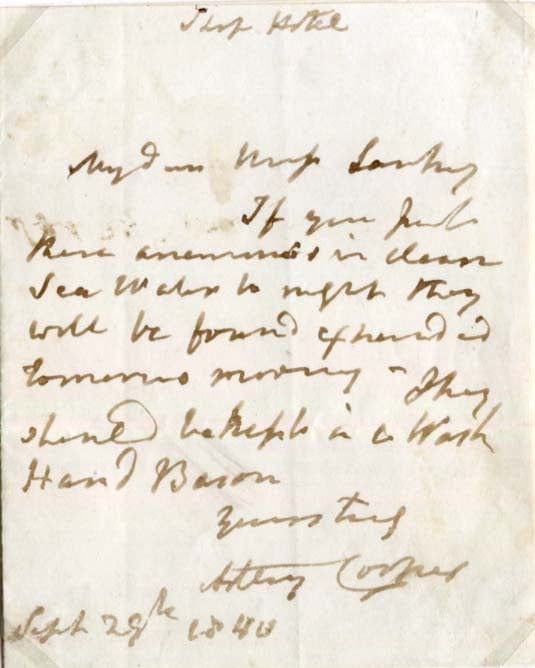 Ship Hotel
My dear Miss
If you put
these anemonies in clean
Sea Water to night they
will be found expanded
tomorrow morning - They
should be kept in a Wash
Hand Bason
Yours truly
Astley Cooper
Sept 29th 1840